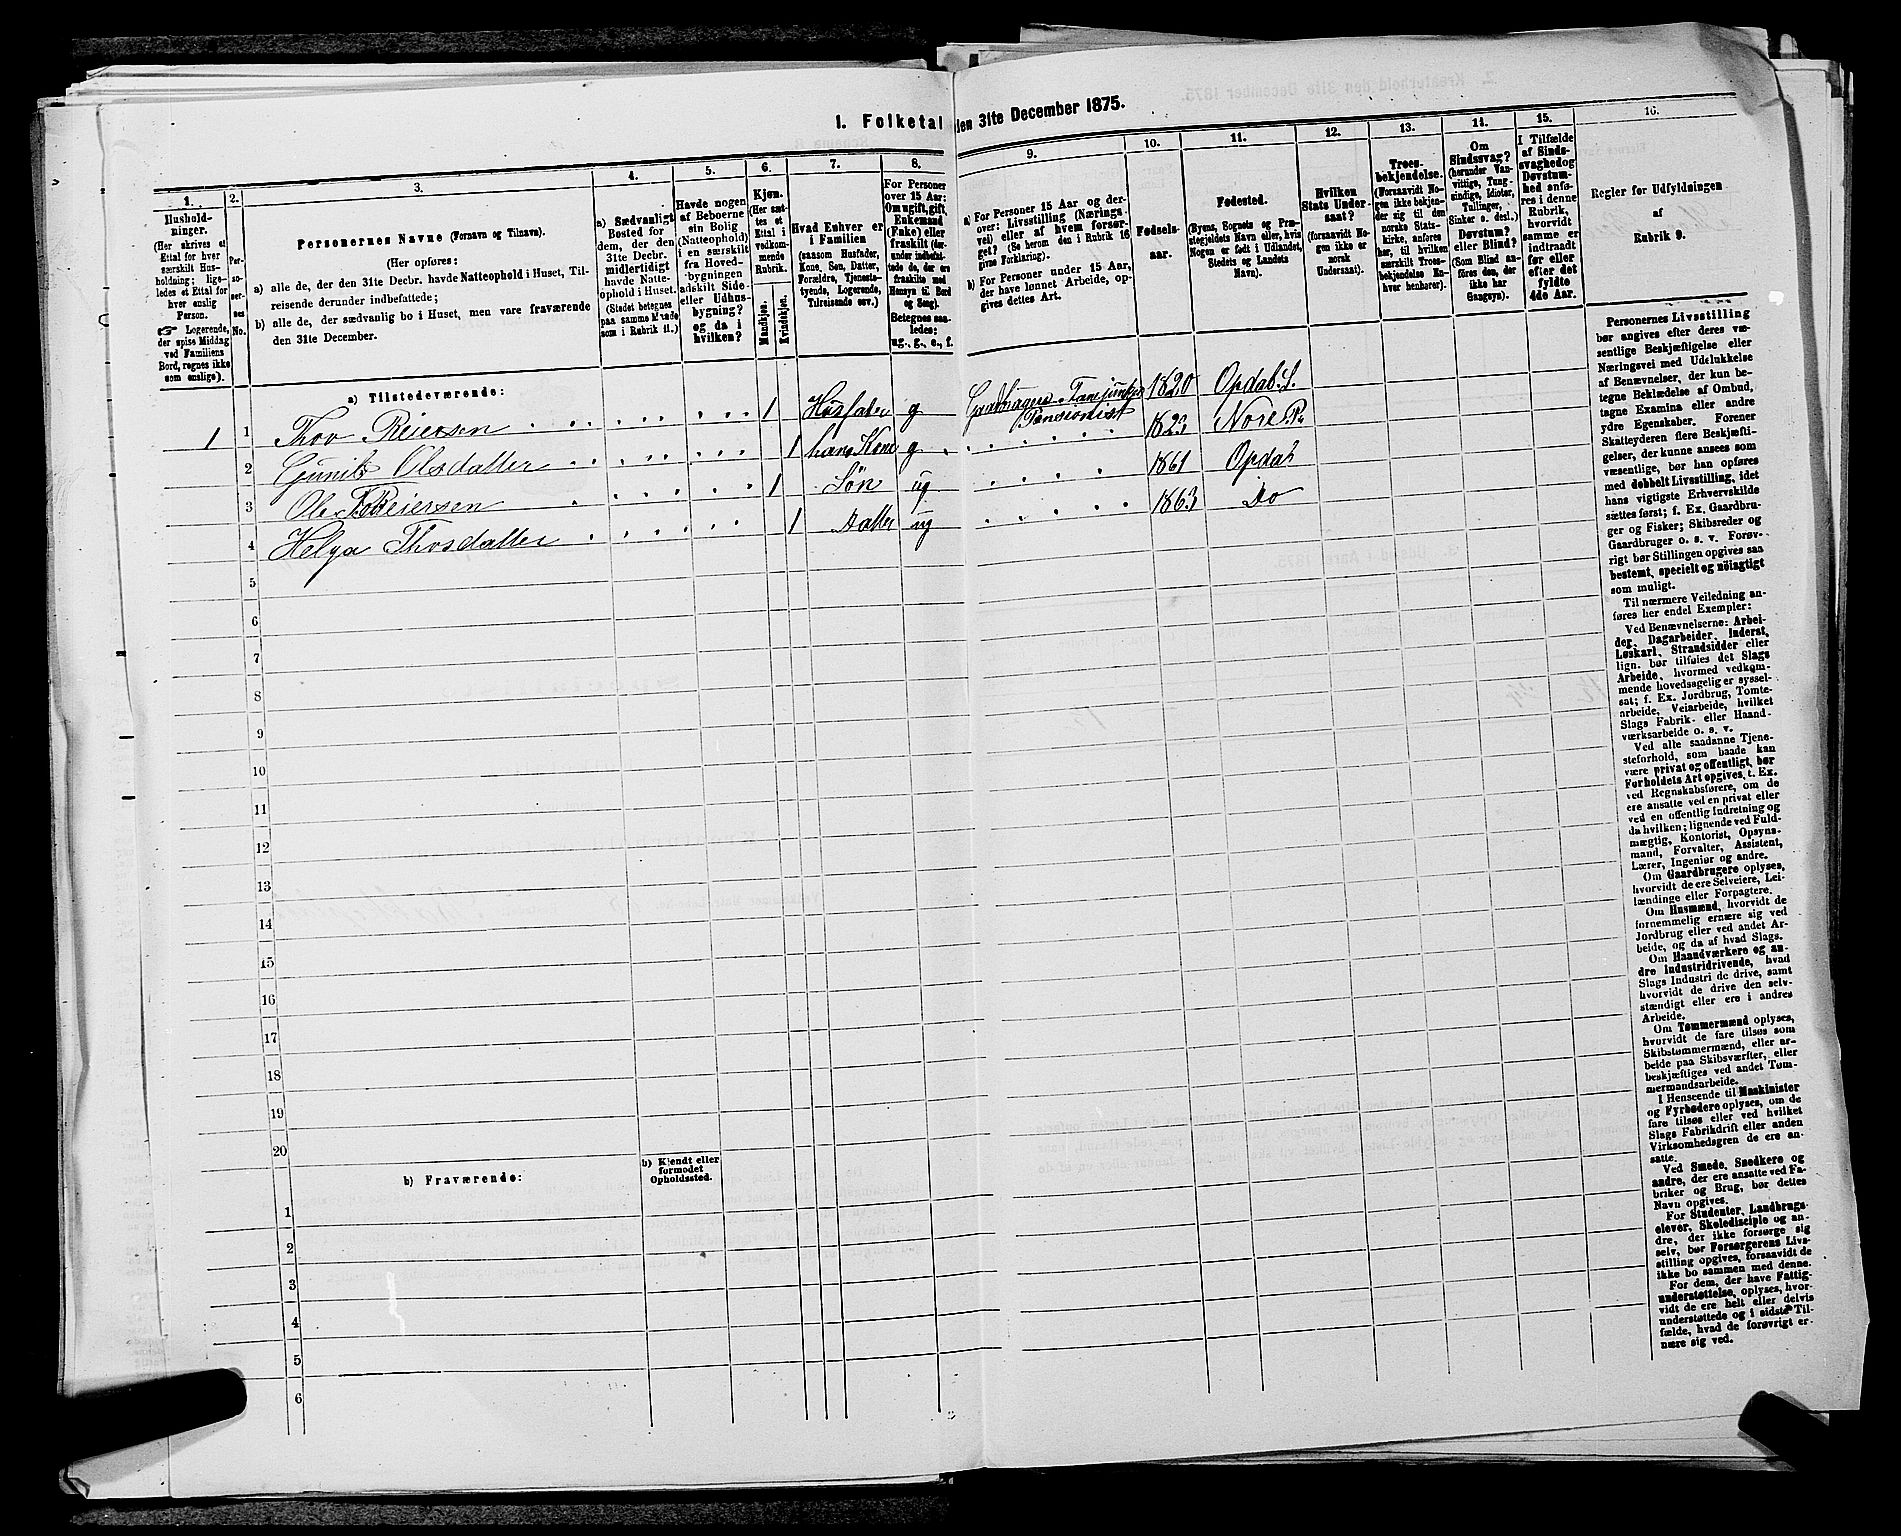 1. Folketal den 31te December 1875.
1.
Hushold-
ninger.
(Her skrives et
Ettal for hver
særskilt Hus-
holdning; lige-
ledes et Ettal for
hver enslig
Person.
Logerende,
der spise Middag
ved Familiens
Bord, regnes ikke
som enslige).
2.
Per-
so-
ner-
nes
No.
3.
Personernes Navne (Fornavn og Tilnavn).
(Her opføres:
a) alle de, der den 31te Decbr. havde Natteophold i Huset, Til-
reisende derunder indbefattede;
b) alle de, der sædvanlig bo i Huset, men vare fraværende
den 31te December.
4.
a) Sædvanligt
Bosted for
dem, der den
31te Decbr.
midlertidigt
havde Natte-
ophold i Huset.
(Stedet betegnes
paa samme Maade
som i Rubrik 11.)
5.
Havde nogen
af Beboerne
sin Bolig
(Natteophold)
i en særskilt
fra Hoved-
bygningen
adskilt Side-
eller Udhus-
bygning?
og da i
hvilken?
6.
Kjøn.
(Her sæt-
tes et
Ettal i
vedkom-
mende
Rubrik.
Mandkjøn.
Kvindekjøn.
7.
Hvad Enhver er
i Familien
(saasom Husfader,
Kone, Søn, Datter,
Forældre, Tjeneste-
tyende, Logerende,
Tilreisende osv.)
8.
For Personer
over 15 Aar:
Om ugift, gift,
Enkemand
(Enke) eller
fraskilt
Betegnes saa-
ledes:
ug., g., e., f.
9.
a) For Personer 15 Aar og der-
over: Livsstilling (Nærings-
vei) eller af hvem forsør-
get? (Se herom den i Rubrik 16
givne Forklaring).
b) For Personer under 15 Aar,
der have lønnet Arbeide, op-
gives dettes Art.
10.
Fødsels-
aar.
11.
Fødested.
(Byens, Sognets og Præ-
stegjeldets Navn eller, hvis
Nogen er født i Udlandet,
Stedets og Landets
Navn).
12.
Hvilken
Stats Under-
saat?
(forsaavidt No-
gen ikke er
norsk
Undersaat).
13.
Troes-
bekjendelse.
(Forsaavidt No-
gen ikke bekjen-
der sig til den
norske Stats-
kirke, anføres
her, til hvilken
særskilt Troes-
bekjendelse En-
hver henhører).
14.
Om
Sindssvag?
(herunder Van-
vittige, Tung-
sindige, Idioter,
Tullinger,
Sinker o. desl.)
Døvstum?
eller Blind?
(Som Blind an-
føres den, der
ikke har
Gangsyn).
15.
I Tilfælde
af Sinds-
svaghed og
Døvstum-
hed anfø-
res i denne
Rubrik,
hvorvidt
samme er
indtraadt
før eller
efter det
fyldte
4de Aar.
16.
Regler for Udfyldningen
af
Rubrik 9.
a) Tilstedeværende:
1 1 Thov Reiersen 1 Husfader g Pensionist 1820 Opdal S.
2 Olsdatter 1 hans Kone g 1823 Nore Pr
3 Ole Reiersen 1 Søn ug 1861 Opdal
4 Helga Thosdatter 1 Datter ug 1863 Do
5
6
7
8
9
10
11
12
13
14
15
16
17
18
19
20
b) Fraværende:
b) Kjendt eller
formodet
Opholdssted.
1
2
3
4
5
6
Personernes Livsstilling
bør angives efter deres væ-
sentlige Beskjæftigelse eller
Næringsvei med Udelukkelse
af Benævnelser, der kun be-
tegne Beklædelse af Ombud,
tagne Examina eller andre
ydre Egenskaber. Forener
Skatteyderen flere Beskjæfti-
gelser, der kunne ansees som
væsentlige, bør han opføres
med dobbelt Livsstilling, idet
hans vigtigste Erhvervskilde
sættes først; f. Ex. Gaardbru-
ger og Fisker; Skibsreder og
Gaardbruger o. s. v. Forøv-
rigt bør Stillingen opgives saa
bestemt, specielt og nöiagtigt
som muligt.
Til nærmere Veiledning an-
føres her endel Exempler:
Ved Benævnelserne: Arbei-
der, Dagarbeider, Inderst,
Løskarl, Strandsidder eller
lign. bør tilføies det Slags
Arbeide, hvormed vedkom-
mende hovedsagelig er syssel-
sat; f. Ex. Jordbrug, Tomte-
arbeide, Veiarbeide, hvilket
Slags Fabrik- eller Haand-
værksarbeide o. s. v.
Ved alle saadanne Tjene-
steforhold, som baade kan
være privat og offentligt, bør
Forholdets Art opgives, t. Ex.
ved Regnskabsførere, om de
ere ansatte ved en privat eller
ved en offentlig Indretning og
da hvilken; lignende ved Fuld-
mægtig, Kontorist, Opsyns-
mand, Forvalter, Assistent,
Lærer, Ingeniør og andre.
Om Gaardbrugere oplyses,
hvorvidt de ere Selveiere, Lei-
lændinge eller Forpagtere.
Om Husmænd, hvorvidt de
fornemmelig ernære sig ved
Jordbrug eller ved andet Ar-
beide, og da af hvad Slags.
Om Haandværkere og an-
dre Industridrivende, hvad
Slags Industri de drive, samt
hvorvidt de drive den selv-
stændigt eller ere i andres
Arbeide.
Om Tømmermænd oplyses,
hvorvidt de fare tilsøs som
Skibstømmermænd, eller ar-
beide paa Skibsværfter, eller
beskjæftiges ved andet Tøm-
mermandsarbeide.
I Henseende til Maskinister
og Fyrbødere oplyses, om de
fare tilsøs eller ved hvilket
Slags Fabrikdrift eller anden
Virksomhedsgren de ere an-
satte.
Ved Smede, Snedkere og
andre, der ere ansatte ved Fa-
briker og Brug, bør dettes
Navn opgives.
For Studenter, Landbrugs-
elever, Skoledisciple og an-
dre, der ikke forsørge sig
selv, bør Forsørgerens Livs-
stilling opgives, forsaavidt de
ikke bo sammen med denne.
For dem, der have Fattig-
understøttelse, oplyses, hvor-
vidt de ere helt eller delvis
understøttede og i sidste Til-
fælde, hvad de forøvrigt er-
nære sig ved.